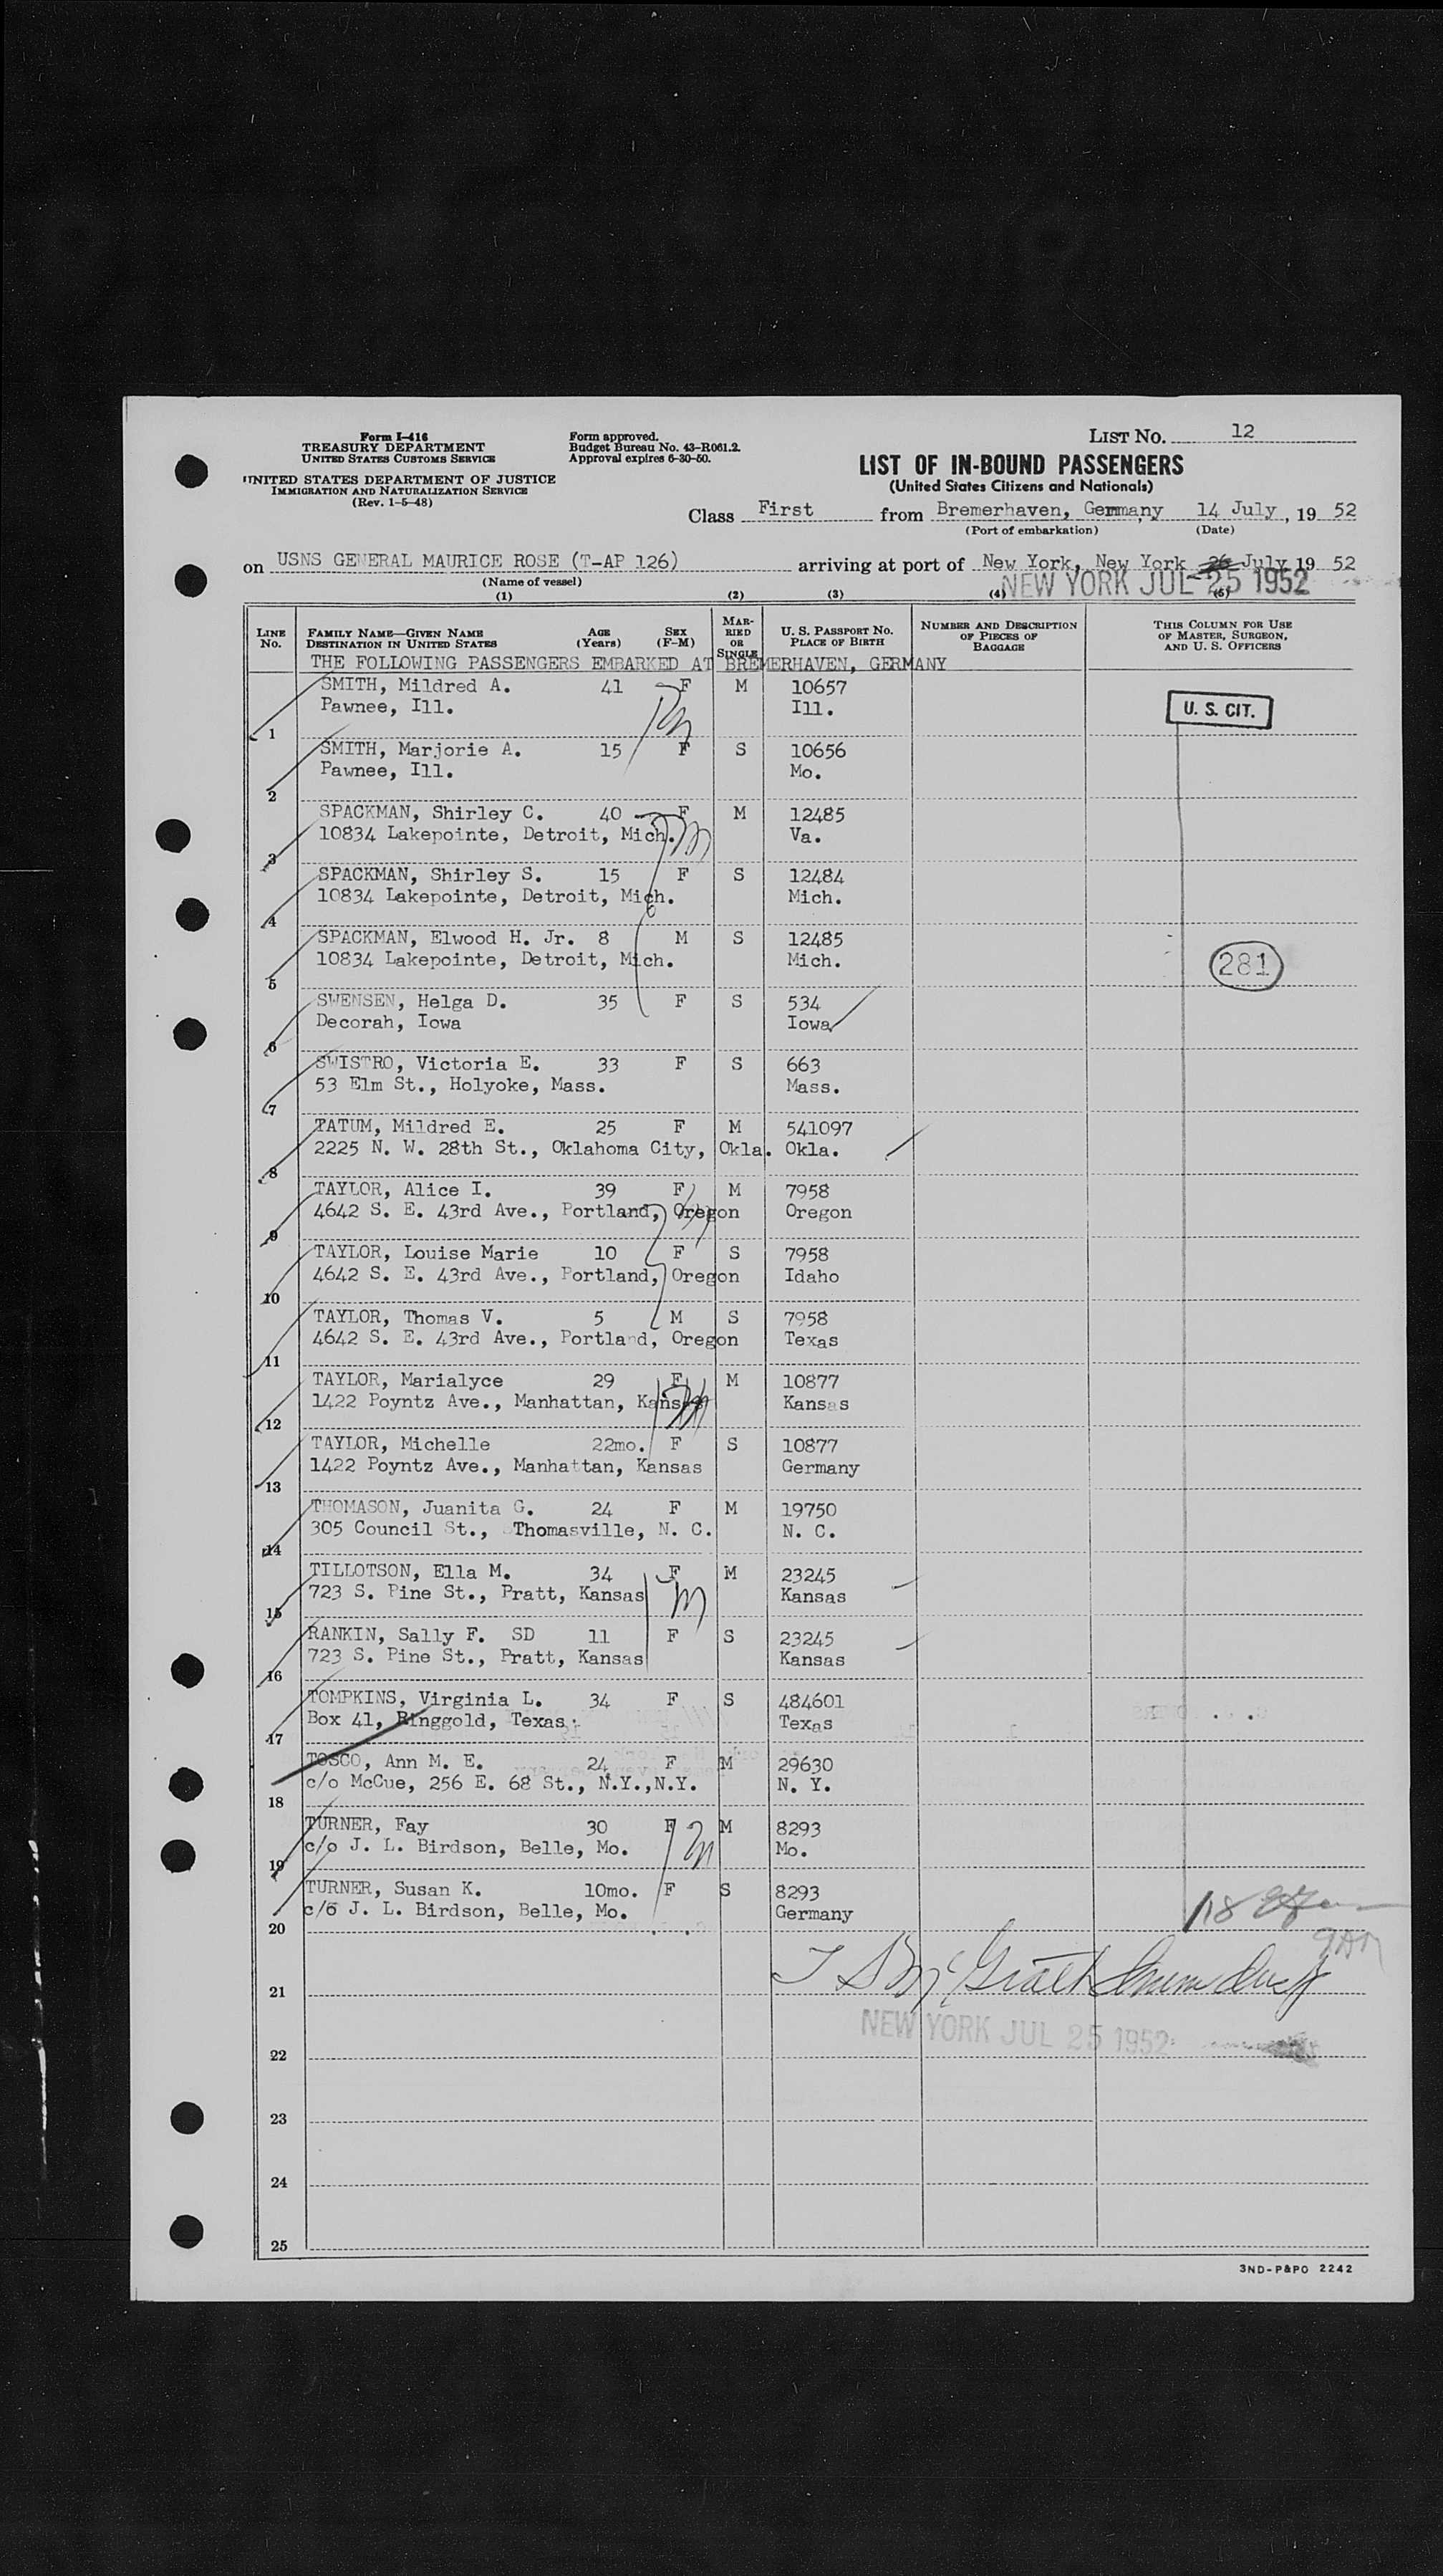 Form I-416
TREASURY DEPARTMENT
UNITED STATES CUSTOMS SERVICE
UNITED STATES DEPARTMENT OF JUSTICE
IMMIGRATION AND NATURALIZATION SERVICE
(Rev. 1-5-48)
Form approved.
Budget Bureau No. 43-R061.2.
Approval expires 6-30-50.
LIST No. 12
LIST OF IN-BOUND PASSENGERS
(United States Citizens and Nationals)
Class First from Bremerhaven, Germany 14 July, 19 52
(Port of embarkation) (Date)
on USNS GENERAL MAURICE ROSE (T-AP 126) arriving at port of New York, New York 26 July 19 52
(Name of vessel)
NEW YORK JUL 25 1952
(1) (2) (3) (4) (5)
LINE No. FAMILY NAME—GIVEN NAME DESTINATION IN UNITED STATES AGE (Years) SEX (F-M) MARRIED OR SINGLE U. S. PASSPORT NO. PLACE OF BIRTH NUMBER AND DESCRIPTION OF PIECES OF BAGGAGE THIS COLUMN FOR USE OF MASTER, SURGEON, AND U. S. OFFICERS
THE FOLLOWING PASSENGERS EMBARKED AT BREMERHAVEN, GERMANY
SMITH, Mildred A. 41 F M 10657
Pawnee, Ill. Ill. U. S. CIT.
1
SMITH, Marjorie A. 15 F S 10656
Pawnee, Ill. Mo.
2
SPACKMAN, Shirley C. 40 F M 12485
10834 Lakepointe, Detroit, Mich. Va.
3
SPACKMAN, Shirley S. 15 F S 12484
10834 Lakepointe, Detroit, Mich. Mich.
4
SPACKMAN, Elwood H. Jr. 8 M S 12485
10834 Lakepointe, Detroit, Mich. Mich. 281
5
SWENSEN, Helga D. 35 F S 534
Decorah, Iowa Iowa
6
SWISTRO, Victoria E. 33 F S 663
53 Elm St., Holyoke, Mass. Mass.
7
TATUM, Mildred E. 25 F M 541097
2225 N. W. 28th St., Oklahoma City, Okla. Okla.
8
TAYLOR, Alice I. 39 F M 7958
4642 S. E. 43rd Ave., Portland, Oregon Oregon
9
TAYLOR, Louise Marie 10 F S 7958
4642 S. E. 43rd Ave., Portland, Oregon Idaho
10
TAYLOR, Thomas V. 5 M S 7958
4642 S. E. 43rd Ave., Portland, Oregon Texas
11
TAYLOR, Marialyce 29 F M 10877
1422 Poyntz Ave., Manhattan, Kansas Kansas
12
TAYLOR, Michelle 22mo. F S 10877
1422 Poyntz Ave., Manhattan, Kansas Germany
13
THOMASON, Juanita G. 24 F M 19750
305 Council St., Thomasville, N. C. N. C.
14
TILLOTSON, Ella M. 34 F M 23245
723 S. Pine St., Pratt, Kansas Kansas
15
RANKIN, Sally F. SD 11 F S 23245
723 S. Pine St., Pratt, Kansas Kansas
16
TOMPKINS, Virginia L. 34 F S 484601
Box 41, Ringgold, Texas Texas
17
TOSCO, Ann M. E. 24 F M 29630
c/o McCue, 256 E. 68 St., N.Y.,N.Y. N. Y.
18
TURNER, Fay 30 F M 8293
c/o J. L. Birdson, Belle, Mo. Mo.
19
TURNER, Susan K. 10mo. F S 8293
c/o J. L. Birdson, Belle, Mo. Germany
20
21
NEW YORK JUL 25 1952
22
23
24
25
3ND-P&PO 2242